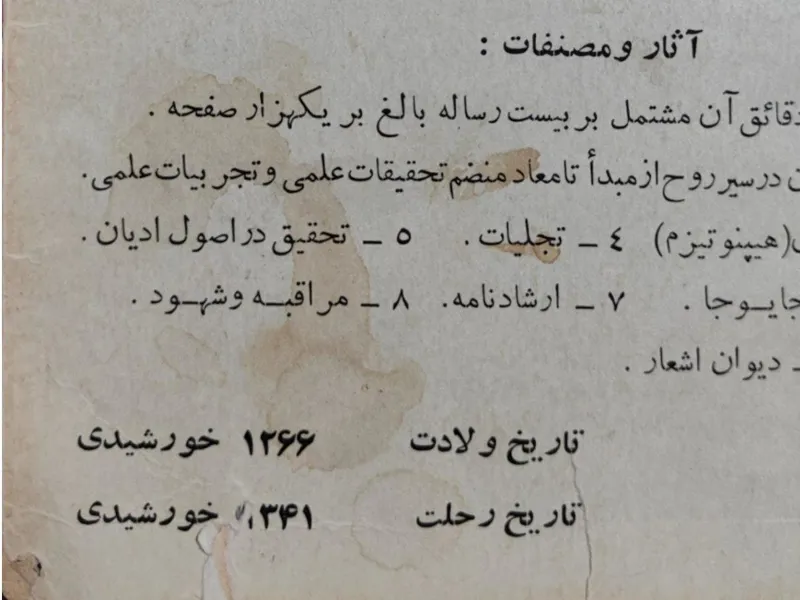 آثار ومصنفات :
دقائق آن مشتمل بر بیست رساله بالغ بر یکهزار صفحه .
در سیر روح از مبدأ تا معاد منضم تحقیقات علمی و تجربیات علمی.
(هیپنو تیزم) ٤ ـ تجلیات . ٥ ـ تحقیق در اصول ادیان .
جایوجا . ٧ ـ ارشادنامه . ٨ ـ مراقبه وشهود .
ـ دیوان اشعار .
تاریخ ولادت ۱۲۶۶ خورشیدی
تاریخ رحلت ۱۳۴۱ خورشیدی